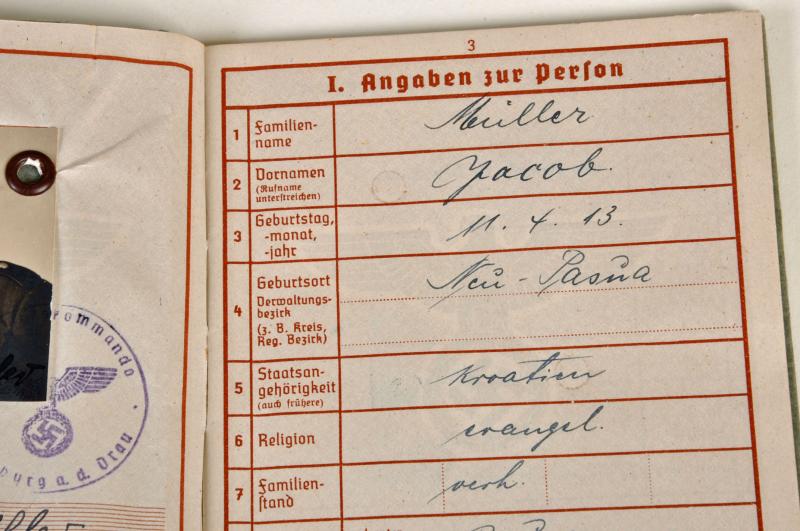 ommando
burg a. d. Drau
3
I. Angaben zur Person
1 Familien-
name
Müller
2 Vornamen
(Rufname
unterstreichen)
Jacob.
3 Geburtstag,
-monat,
-jahr
11. 4. 13.
4 Geburtsort
Verwaltungs-
bezirk
(z. B. Kreis,
Reg. Bezirk)
Neu-Pasua
5 Staatsan-
gehörigkeit
(auch frühere)
Kroatien
6 Religion
evangel.
7 Familien-
stand
verh.